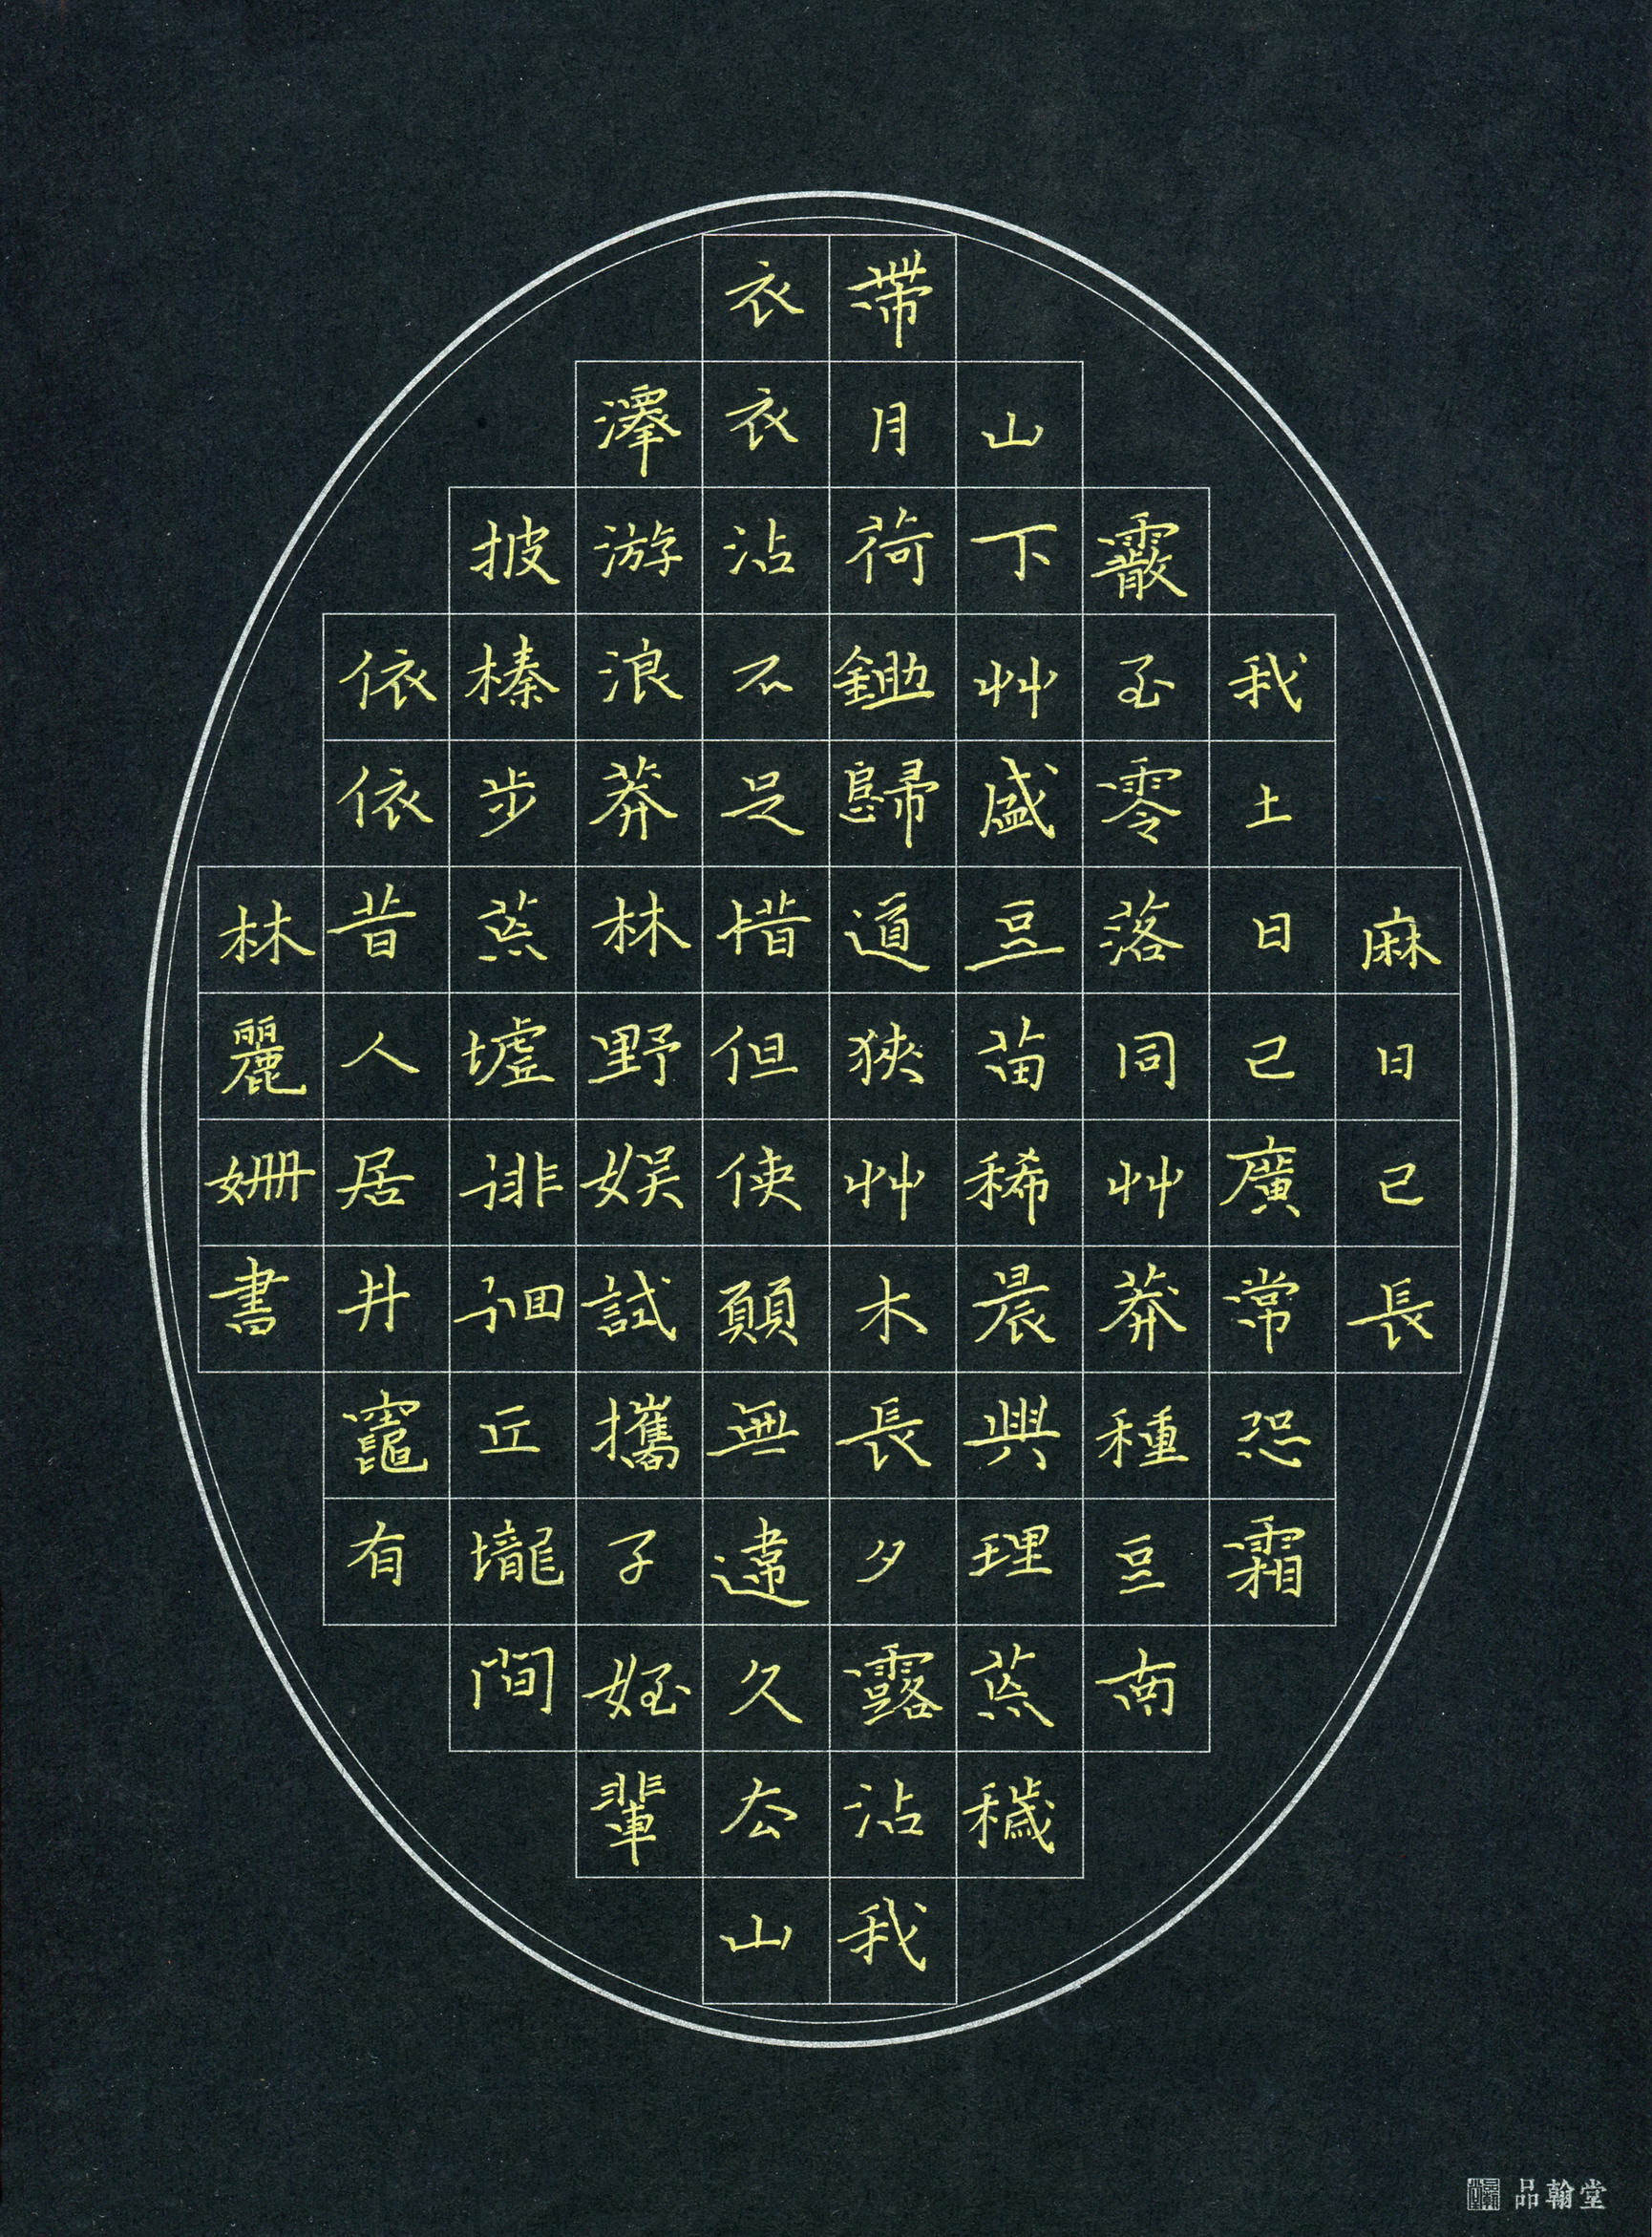 麻日已長
我土日已廣常恐霜
霰至零落同艸莽種豆南
山下艸盛豆苗稀晨興理荒穢
帶月荷鋤歸道狹艸木長夕露沾我
衣衣沾不足惜但使願無違久去山
澤游浪莽林野娛試攜子姪輩
披榛步荒墟徘徊丘壠間
依依昔人居井竈有
林麗姍書
品翰堂